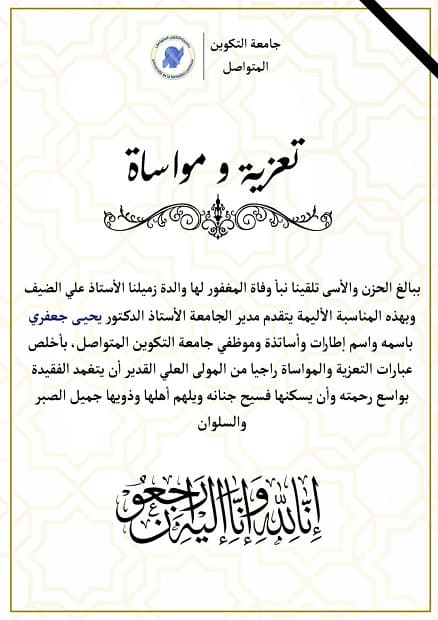 جامعة التكوين
المتواصل
تعزية و مواساة
ببالغ الحزن والأسى تلقينا نبأ وفاة المغفور لها والدة زميلنا الأستاذ علي الضيف
وبهذه المناسبة الأليمة يتقدم مدير الجامعة الأستاذ الدكتور يحيى جعفري
باسمه واسم إطارات وأساتذة وموظفي جامعة التكوين المتواصل، بأخلص
عبارات التعزية والمواساة راجيا من المولى العلي القدير أن يتغمد الفقيدة
بواسع رحمته وأن يسكنها فسيح جنانه ويلهم أهلها وذويها جميل الصبر
والسلوان
إِنَّا لِلَّهِ وَإِنَّا إِلَيْهِ رَاجِعُونَ